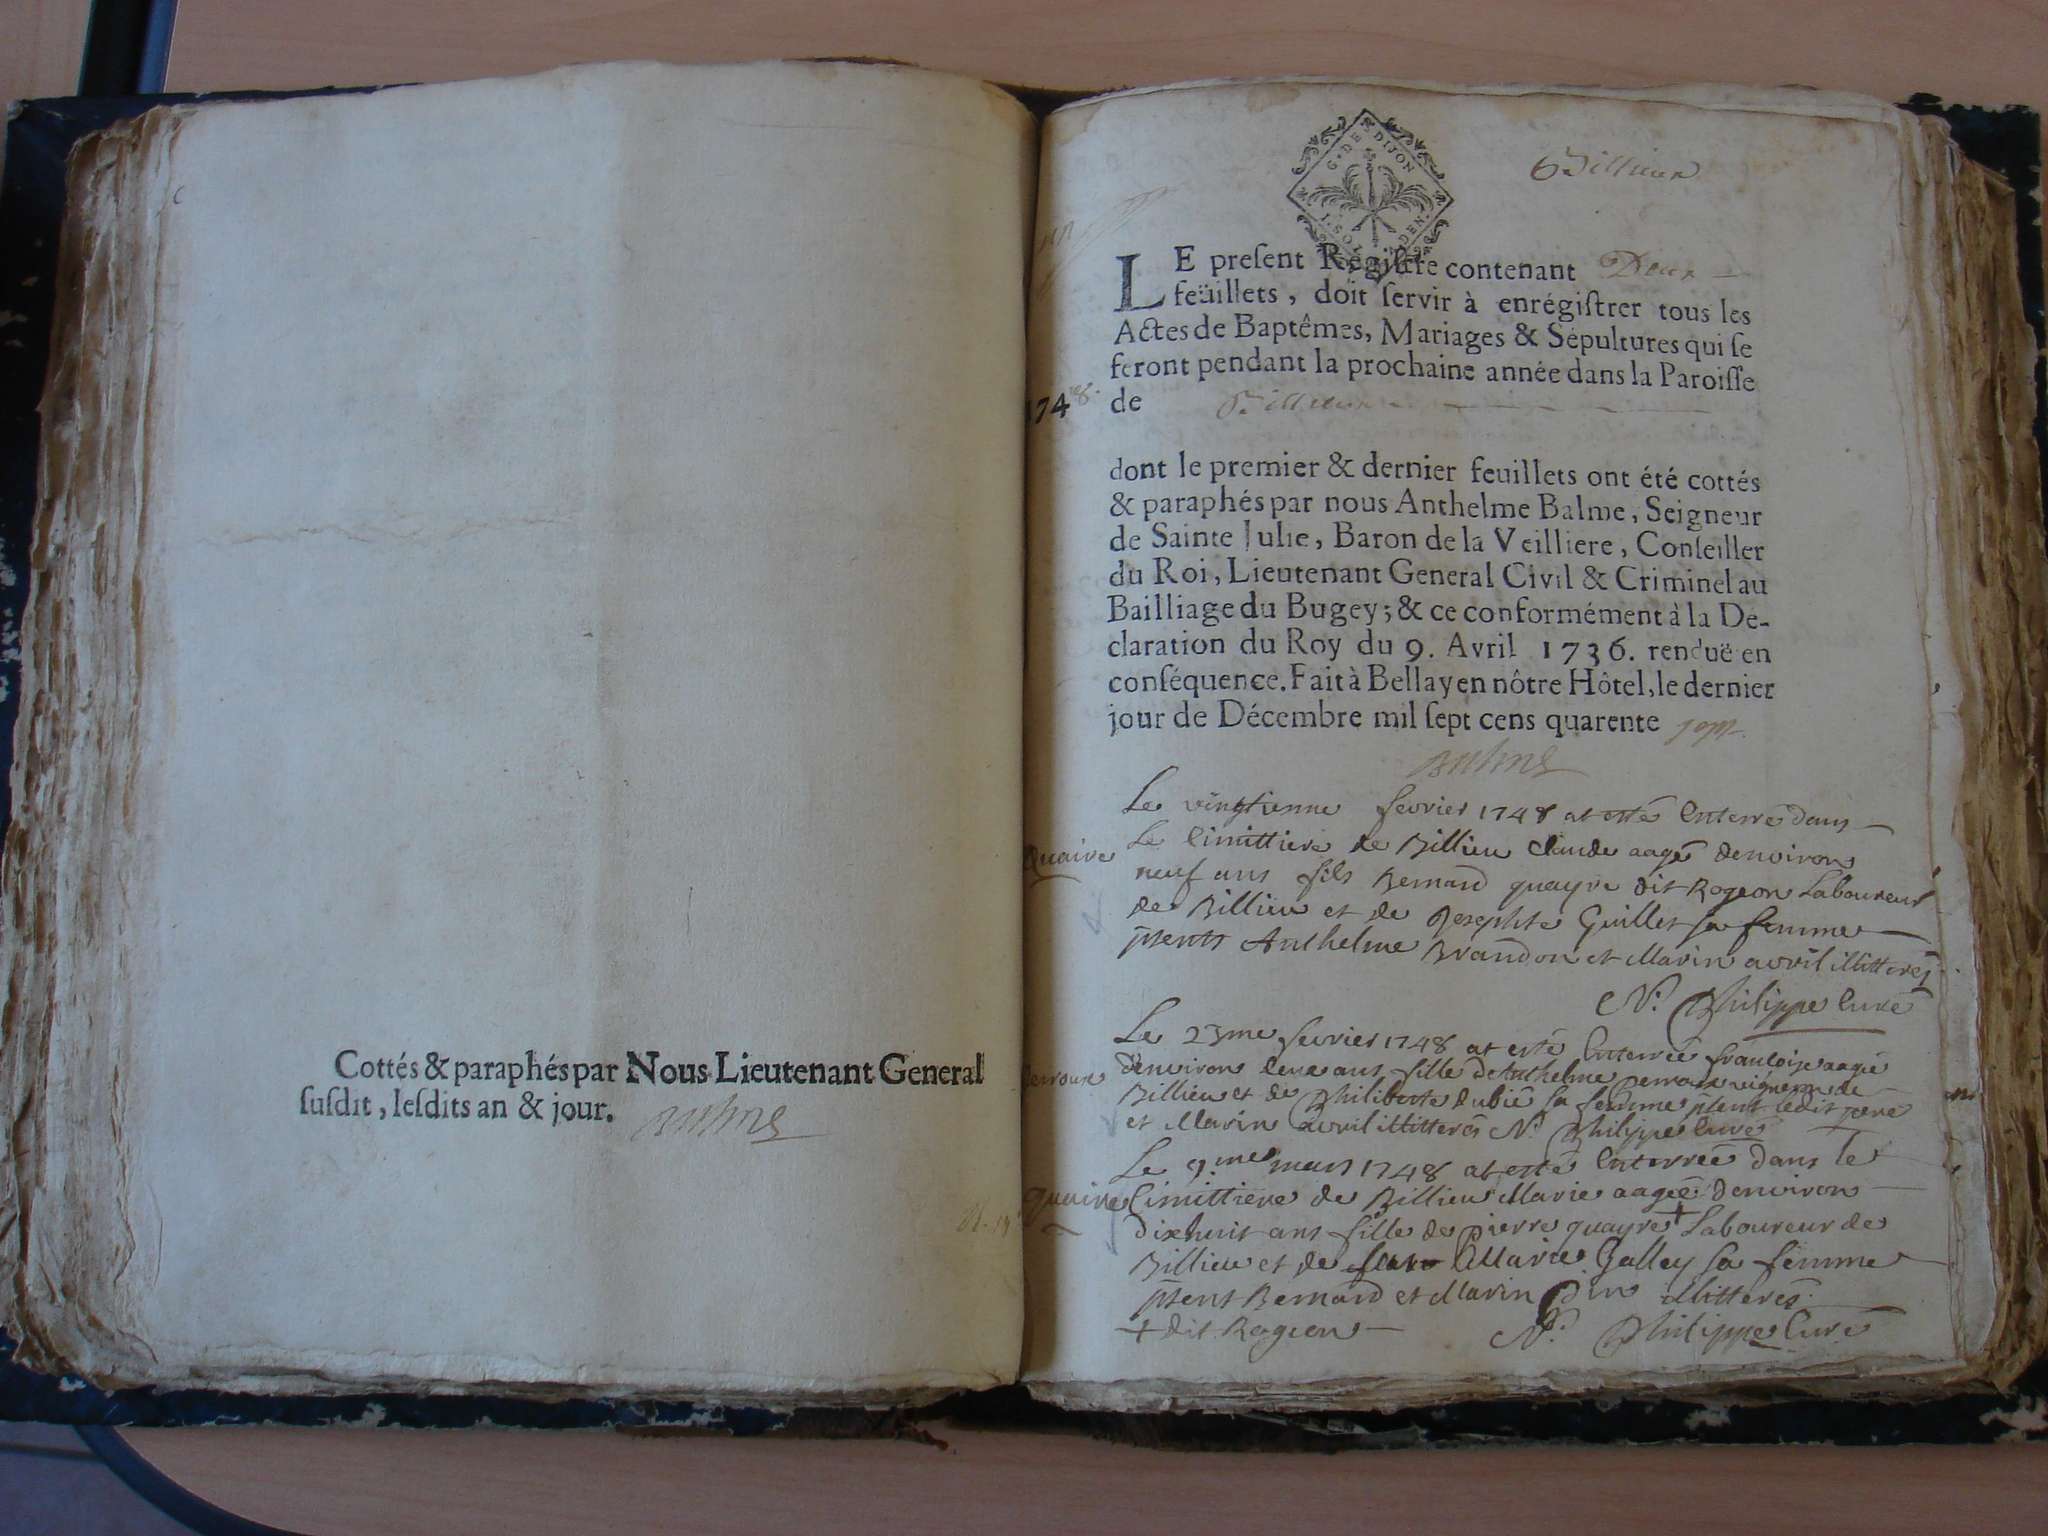 Cottés & paraphés par Nous Lieutenant General
susdit, lesdits an & jour.
G. DE DIJON
Billieux
LE present Régistre contenant Deux
feüillets, doit servir à enrégistrer tous les
Actes de Baptêmes, Mariages & Sépultures qui se
feront pendant la prochaine année dans la Paroisse
1748.
de Billieux
dont le premier & dernier feuillets ont été cottés
& paraphés par nous Anthelme Balme, Seigneur
de Sainte Julie, Baron de la Veilliere, Conseiller
du Roi, Lieutenant General Civil & Criminel au
Bailliage du Bugey; & ce conformément à la De-
claration du Roy du 9. Avril 1736. renduë en
conséquence. Fait à Bellay en nôtre Hôtel, le dernier
jour de Décembre mil sept cens quarente sept.
Le vingtienne fevrier 1748 at esté Enterré dans
Quaire
Le Cimittiere de Billieu Claude aagé denviron
neuf ans fils Bernard quayre dit Rogeon Laboureur
de Billieu et de Josephte Guillet sa femme
psents Anthelme Brandon et Marin avril illitterés
N. Philippe Curé
Le 23me fevrier 1748 at esté Enterreé francoise aagée
perroux
denviron ans fille de Anthelme perroux vigneron de
Billieu et de Philiberte dubié sa femme psent ledit pere
et Marin avril illitterés N. Philippe Curé
Le 9.me mars 1748 at esté Enterreé dans le
quaire
Cimittiere de Billieu Marie aageé denviron
dixhuit ans fille de pierre quayre + Laboureur de
Billieu et de Marie Galley sa femme
psent Bernard et Marin illitterés
+ dit Rogeon N. Philippe Curé